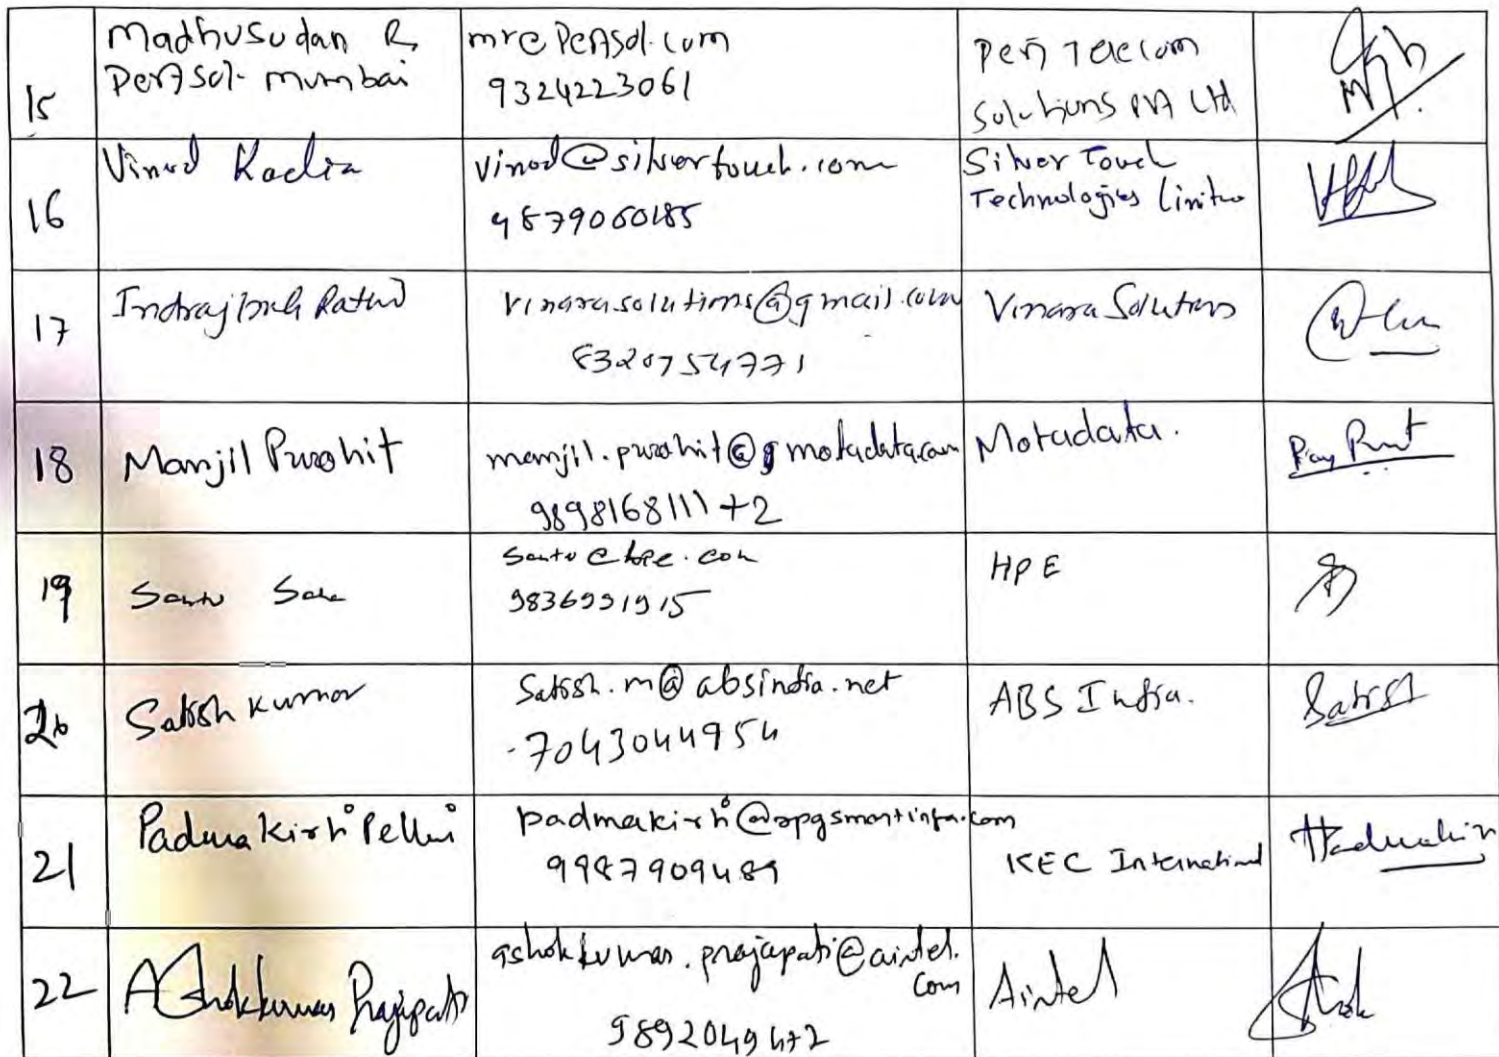 15
Madhusudan R,
PertSol- Mumbai
mr@PertSol.com
9324223061
Pert Telecom
Solutions Pvt Ltd
16
Vinod Kadia
vinod@silvertouch.com
9879060185
Silver Touch
Technologies Limited
17
vinarasolutions@gmail.com
8320754771
Vinara Solutions
18
Manjil Purohit
manjil.purohit@motadata.com
9898168111+2
Motadata.
19
Santu Saha
santu@hpe.com
9836991915
HPE
20
Satish Kumar
Satish.m@absindia.net
7043044954
ABS India.
Satish
21
Padma Kirti Pelluri
padmakirti@apgsmartinfra.com
9987909489
KEC International
22
Ashokkumar Prajapati
ashokkumar.prajapati@airtel.
com
9892049472
Airtel